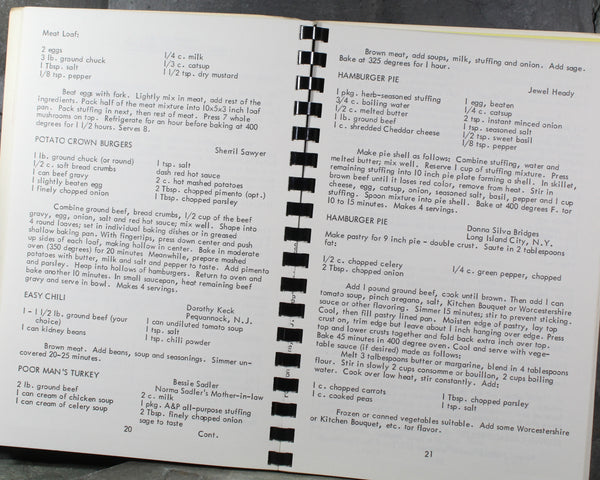 Meat Loaf:
2 eggs
3 lb. ground chuck
1 Tbsp. salt
1/8 tsp. pepper
1/4 c. milk
1/3 c. catsup
1 1/2 tsp. dry mustard
Beat eggs with fork. Lightly mix in meat, add rest of the
ingredients. Pack half of the meat mixture into 10x5x3 inch loaf
pan. Pack stuffing in next, then rest of meat. Press 7 whole
mushrooms on top. Refrigerate for an hour before baking at 400
degrees for 1 1/2 hours. Serves 8.
POTATO CROWN BURGERS
Sherril Sawyer
1 lb. ground chuck (or round)
1/2 c. soft bread crumbs
1 can beef gravy
1 slightly beaten egg
1 finely chopped onion
1 tsp. salt
dash red hot sauce
2 c. hot mashed potatoes
2 Tbsp. chopped pimento (opt.)
1 Tbsp. chopped parsley
Combine ground beef, bread crumbs, 1/2 cup of the beef
gravy, egg, onion, salt and red hot sauce; mix well. Shape into
4 round loaves; set in individual baking dishes or in greased
shallow baking pan. With fingertips, press down center and push
up sides of each loaf, making hollow in center. Bake in moderate
oven (350 degrees) for 20 minutes Meanwhile, prepare mashed
potatoes with butter, milk and salt and pepper to taste. Add pimento
and parsley. Heap into hollows of hamburgers. Return to oven and
bake another 10 minutes. In small saucepan, heat remaining beef
gravy and serve in bowl. Makes 4 servings.
EASY CHILI
Dorothy Keck
Pequannock, N.J.
1 - 1 1/2 lb. ground beef (your
choice)
1 can kidney beans
1 can undiluted tomato soup
1 tsp. salt
1 tsp. chili powder
Brown meat. Add beans, soup and seasonings. Simmer un-
covered 20-25 minutes.
POOR MAN'S TURKEY
Bessie Sadler
Norma Sadler's Mother-in-law
2 lb. ground beef
1 can cream of chicken soup
1 can cream of celery soup
2 c. milk
1 pkg. A&P all-purpose stuffing
2 Tbsp. finely chopped onion
sage to taste
20
Cont.
Brown meat, add soups, milk, stuffing and onion. Add sage.
Bake at 325 degrees for 1 hour.
HAMBURGER PIE
Jewel Heady
1 pkg. herb-seasoned stuffing
3/4 c. boiling water
1/2 c. melted butter
1 lb. ground beef
1 c. shredded Cheddar cheese
1 egg, beaten
1/4 c. catsup
2 tsp. instant minced onion
1 tsp. seasoned salt
1/2 tsp. sweet basil
1/8 tsp. pepper
Make pie shell as follows: Combine stuffing, water and
melted butter; mix well. Reserve 1 cup of stuffing mixture. Press
remaining stuffing into 10 inch pie plate forming a shell. In skillet,
brown beef until it loses red color, remove from heat. Stir in
cheese, egg, catsup, onion, seasoned salt, basil, pepper and 1 cup
stuffing. Spoon mixture into pie shell. Bake at 400 degrees F. for
10 to 15 minutes. Makes 4 servings.
HAMBURGER PIE
Donna Silva Bridges
Long Island City, N.Y.
Make pastry for 9 inch pie - double crust. Saute in 2 tablespoons
fat:
1/2 c. chopped celery
2 Tbsp. chopped onion
1/4 c. green pepper, chopped
Add 1 pound ground beef, cook until brown. Then add 1 can
tomato soup, pinch oregano, salt, Kitchen Bouquet or Worcestershire
sauce or other flavoring. Simmer 15 minutes; stir to prevent sticking.
Cool, then fill pastry lined pan. Moisten edge of pastry, lay top
crust on, trim edge but leave about 1 inch hanging over edge. Press
top and lower crusts together and fold back extra inch over top.
Bake 45 minutes in 400 degree oven. Cool and serve with vege-
table sauce (if desired) made as follows:
Melt 3 talbespoons butter or margarine, blend in 4 tablespoons
flour. Stir in slowly 2 cups consomme or bouillon, 2 cups boiling
water. Cook over low heat, stir constantly. Add:
1 c. chopped carrots
1 c. cooked peas
1 Tbsp. chopped parsley
1 tsp. salt
Frozen or canned vegetables suitable. Add some Worcestershire
or Kitchen Bouquet, etc. for flavor.
21